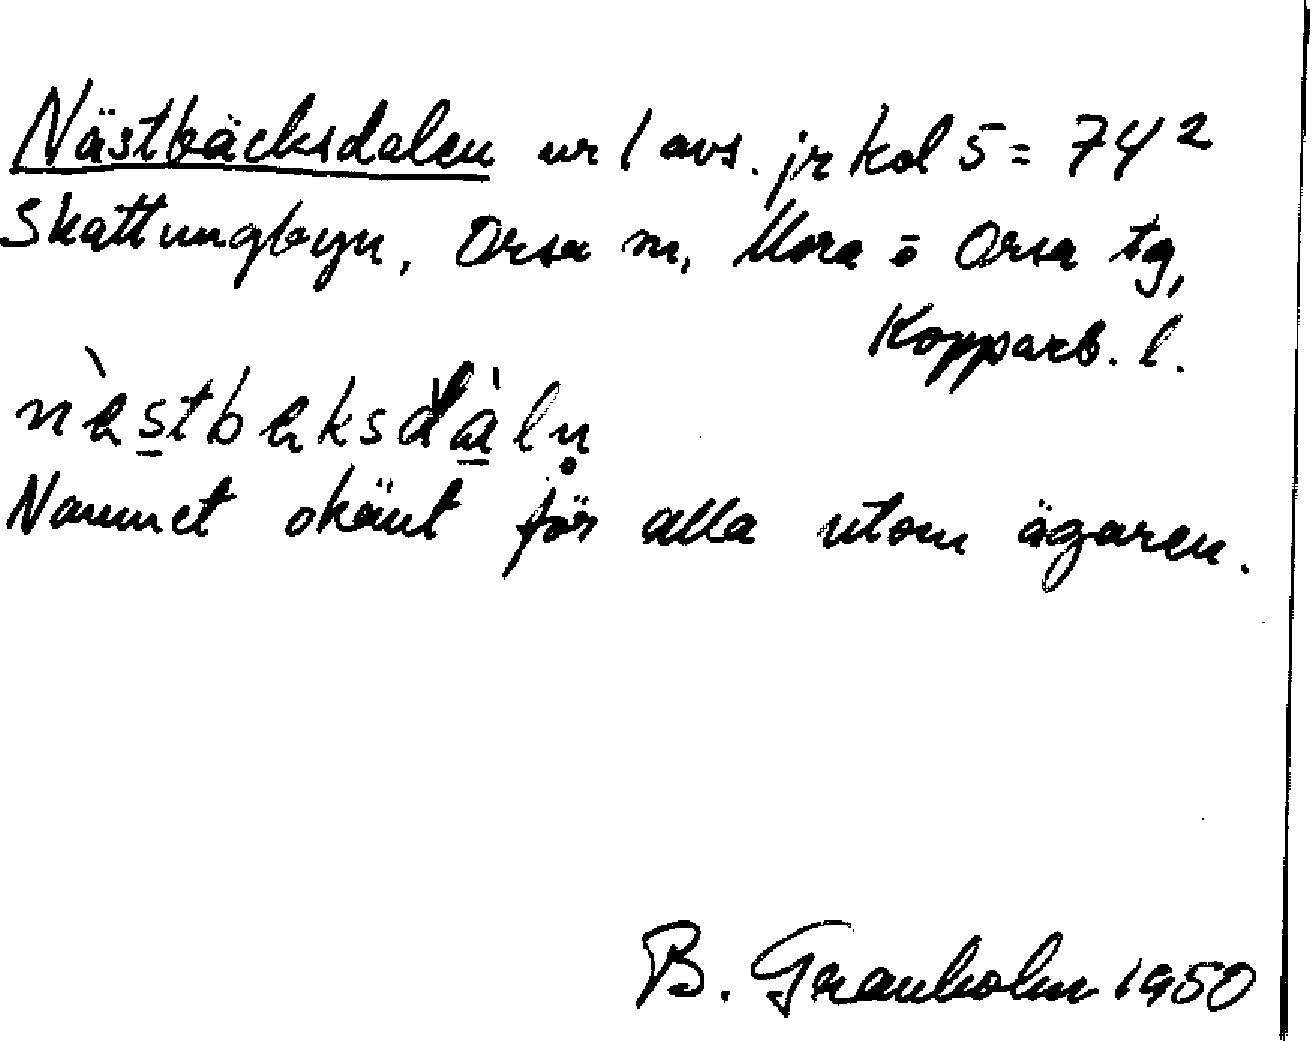 Nästbäcksdalen nr 1 avs. jr kol 5 = 74²
Skattungbyn, Orsa sn, Mora o Orsa tg,
Kopparb. l.
Namnet okänt för alla utom ägaren.
B. Granholm 1950